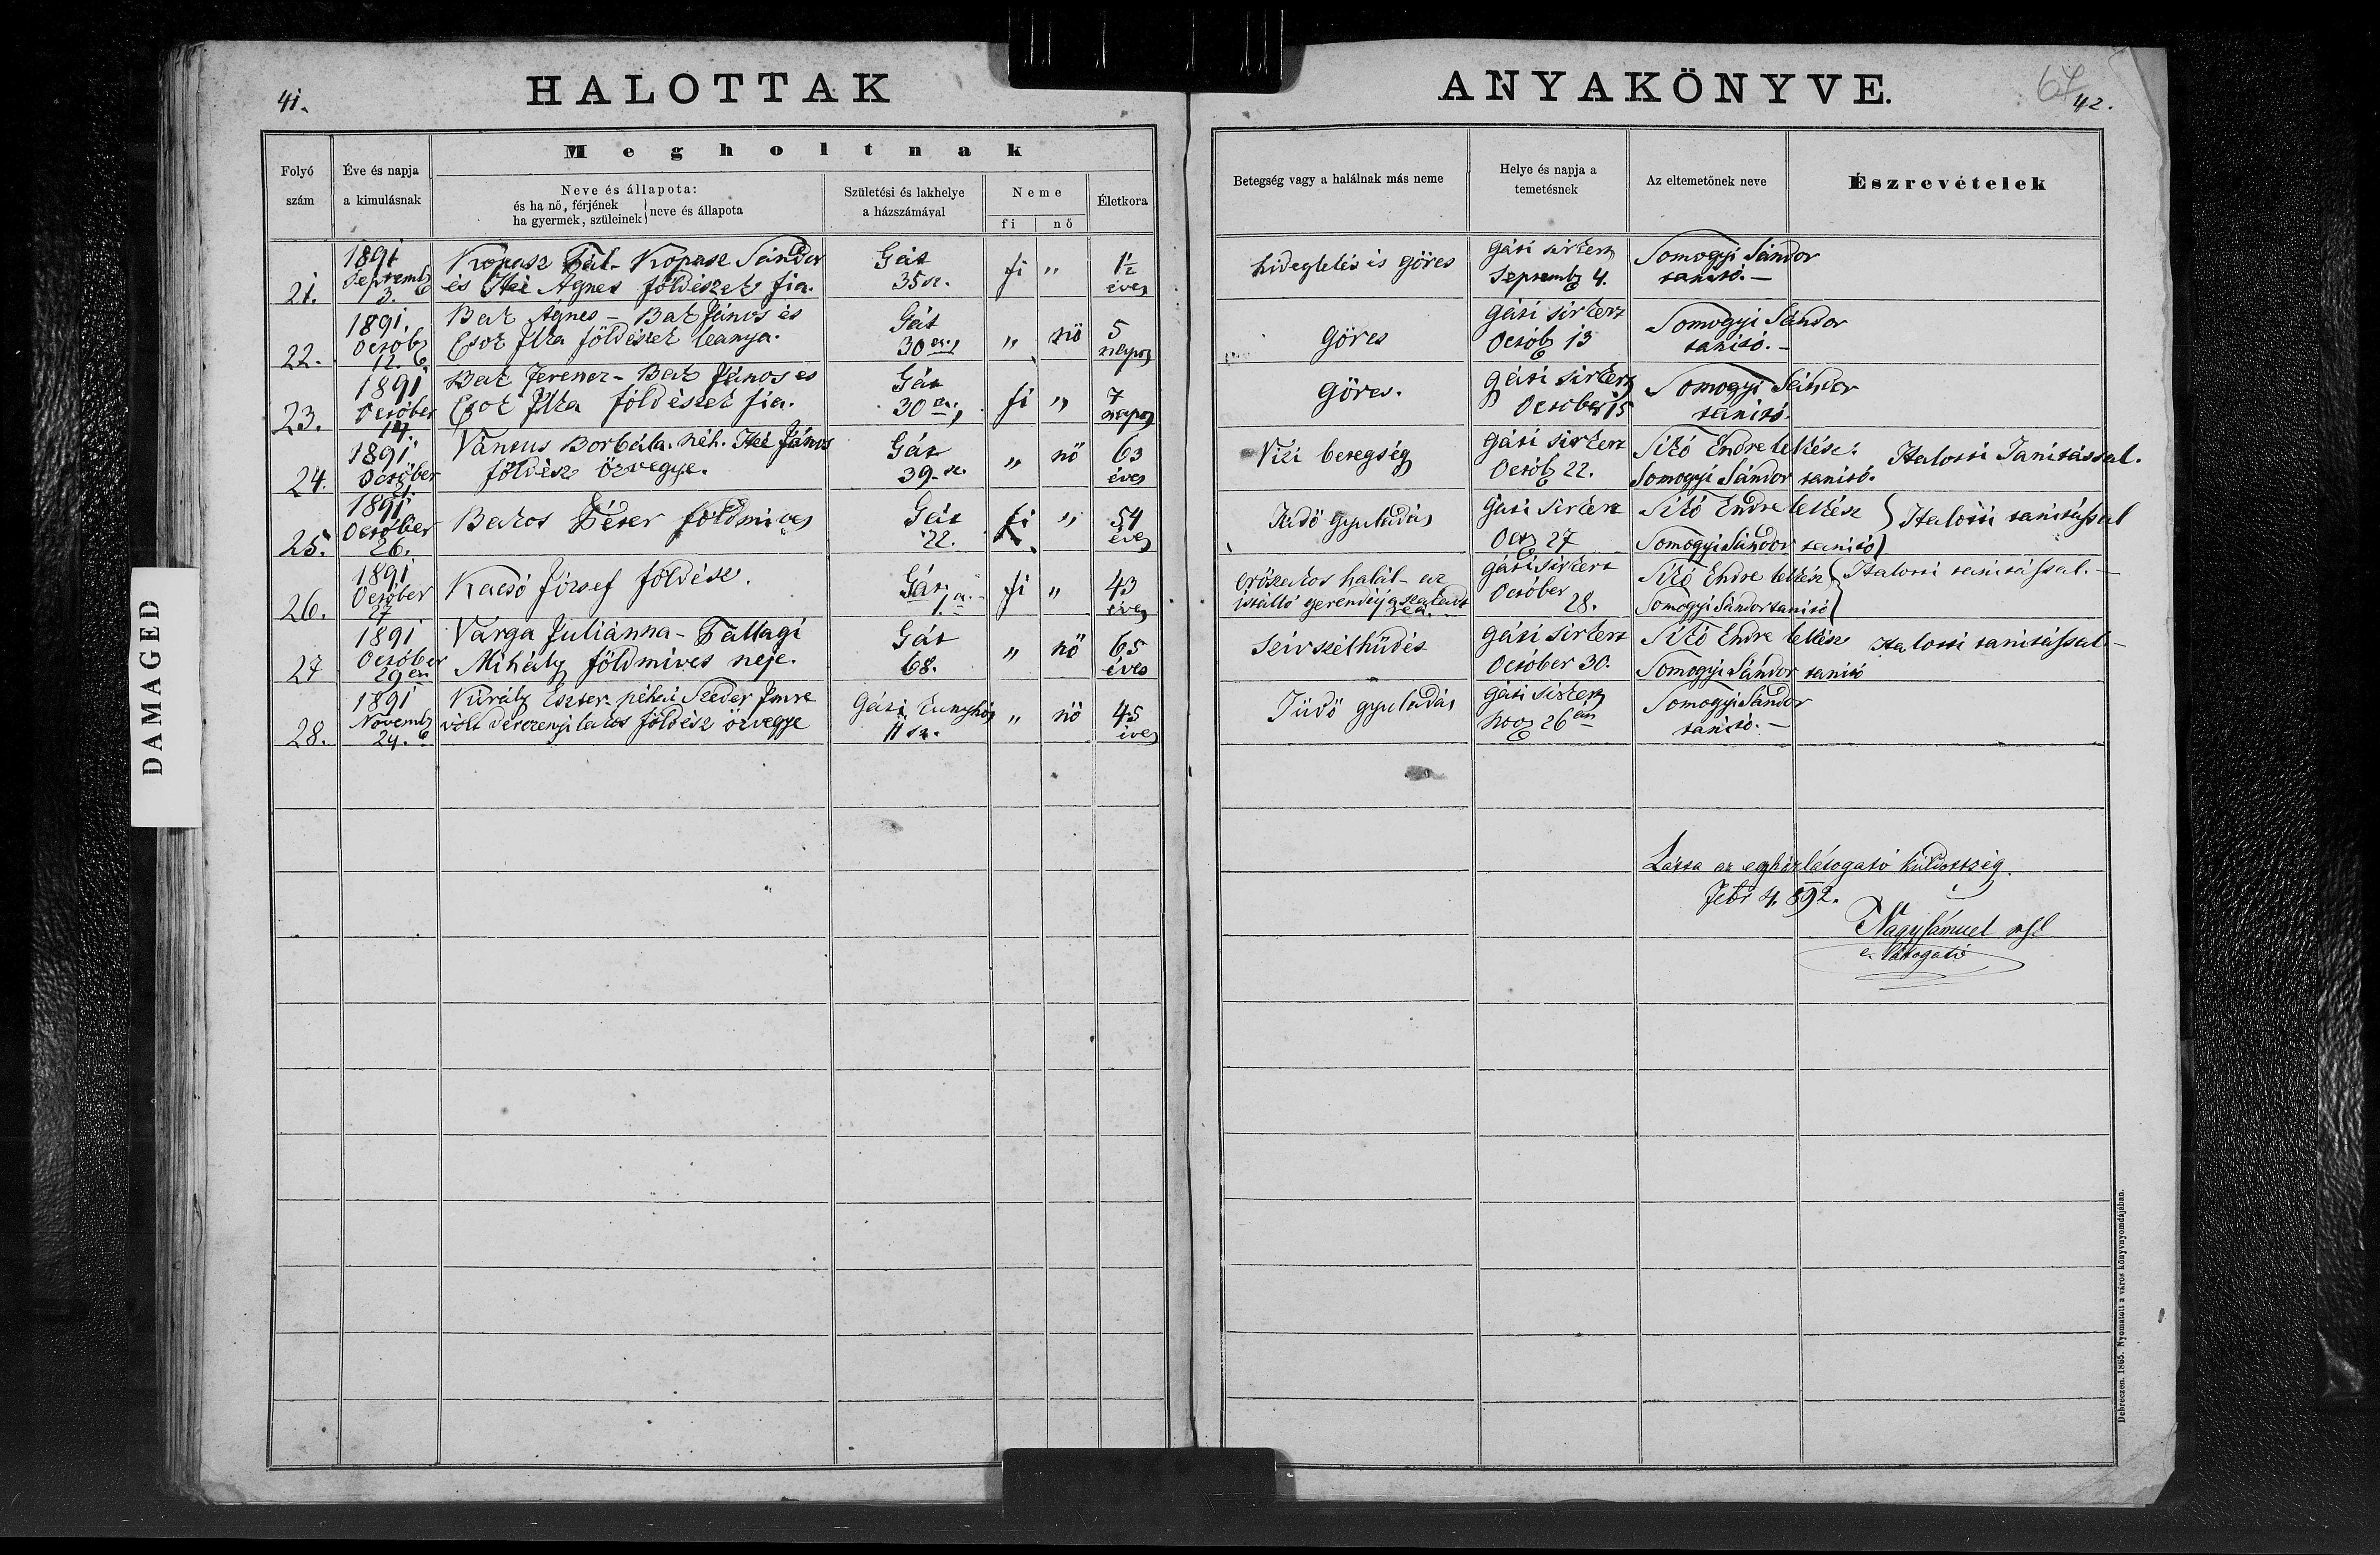 41.
HALOTTAK
ANYAKÖNYVE.
67
42.
DAMAGED
Megholtnak
Folyó szám
Éve és napja a kimulásnak
Neve és állapota:
és ha nő, férjének
ha gyermek, szüleinek } neve és állapota
Születési és lakhelye a házszámával
Neme
fi nő
Életkora
Betegség vagy a halálnak más neme
Helye és napja a temetésnek
Az eltemetőnek neve
Észrevételek
21. 1891 Septemb 3. Kopasz Pál - Kopasz Sándor és Itei Ágnes földészek fia. Gát 35 sz. fi „ 1½ éves hideglelés is görcs gáti sirkert Septemb 4. Somogyi Sándor tanitó. -
22. 1891. Octób 12. Bak Ágnes - Bak János és Csok Ilka földészek leanya. Gát 30 „ nő 5 napos Görcs gáti sirkert Octób 13 Somogyi Sándor tanitó. -
23. 1891 October 14. Bak Ferencz - Bak János és Csok Ilka földészek fia. Gát 30 fi „ 7 napos Görcs. gáti sirkert October 15 Somogyi Sándor tanitó
24. 1891 October Borbála. néh. Itei János földész özvegye. Gát 39. sz. „ nő 63 éves Vizi betegség gáti sirkert Octób 22. Sitó Endre lelkész. Somogyi Sándor tanitó. Halotti Tanitással.
25. 1891 October 26. Bakos Péter földmives Gát 22. fi „ 54 éves Tüdő gyuladás gáti sirkert Oct 27 Sitó Endre lelkész Somogyi Sándor tanitó } Halotti tanitással
26. 1891 October 27 Kacsó József földész. Gát 1. fi „ 43 éves erőszakos halál - az istálló gerendája szakadt reá. gáti sirkert Octóber 28. Sitó Endre lelkész Somogyi Sándor tanitó } Halotti tanitással. -
27 1891 Octóber 29én Varga Juliánna - Pallagi Mihály földmives neje. Gát 68. „ nő 65 éves Szivszélhüdés gáti sirkert Octóber 30. Sitó Endre lelkész Somogyi Sándor tanitó Halotti tanitással. -
28. 1891 Novemb 24. Király Eszter néhai Szeder Imre volt lakos földész özvegye Gáti 11 sz. „ nő 45 éves Tüdő gyuladás gáti sirkert Nov 26 án Somogyi Sándor tanitó. -
Látta az egyházlátogató küldöttség.
Febr 4. 892.
Nagy Sámuel
e. látogató
Debreczen. 1865. Nyomatott a város könyvnyomdájában.